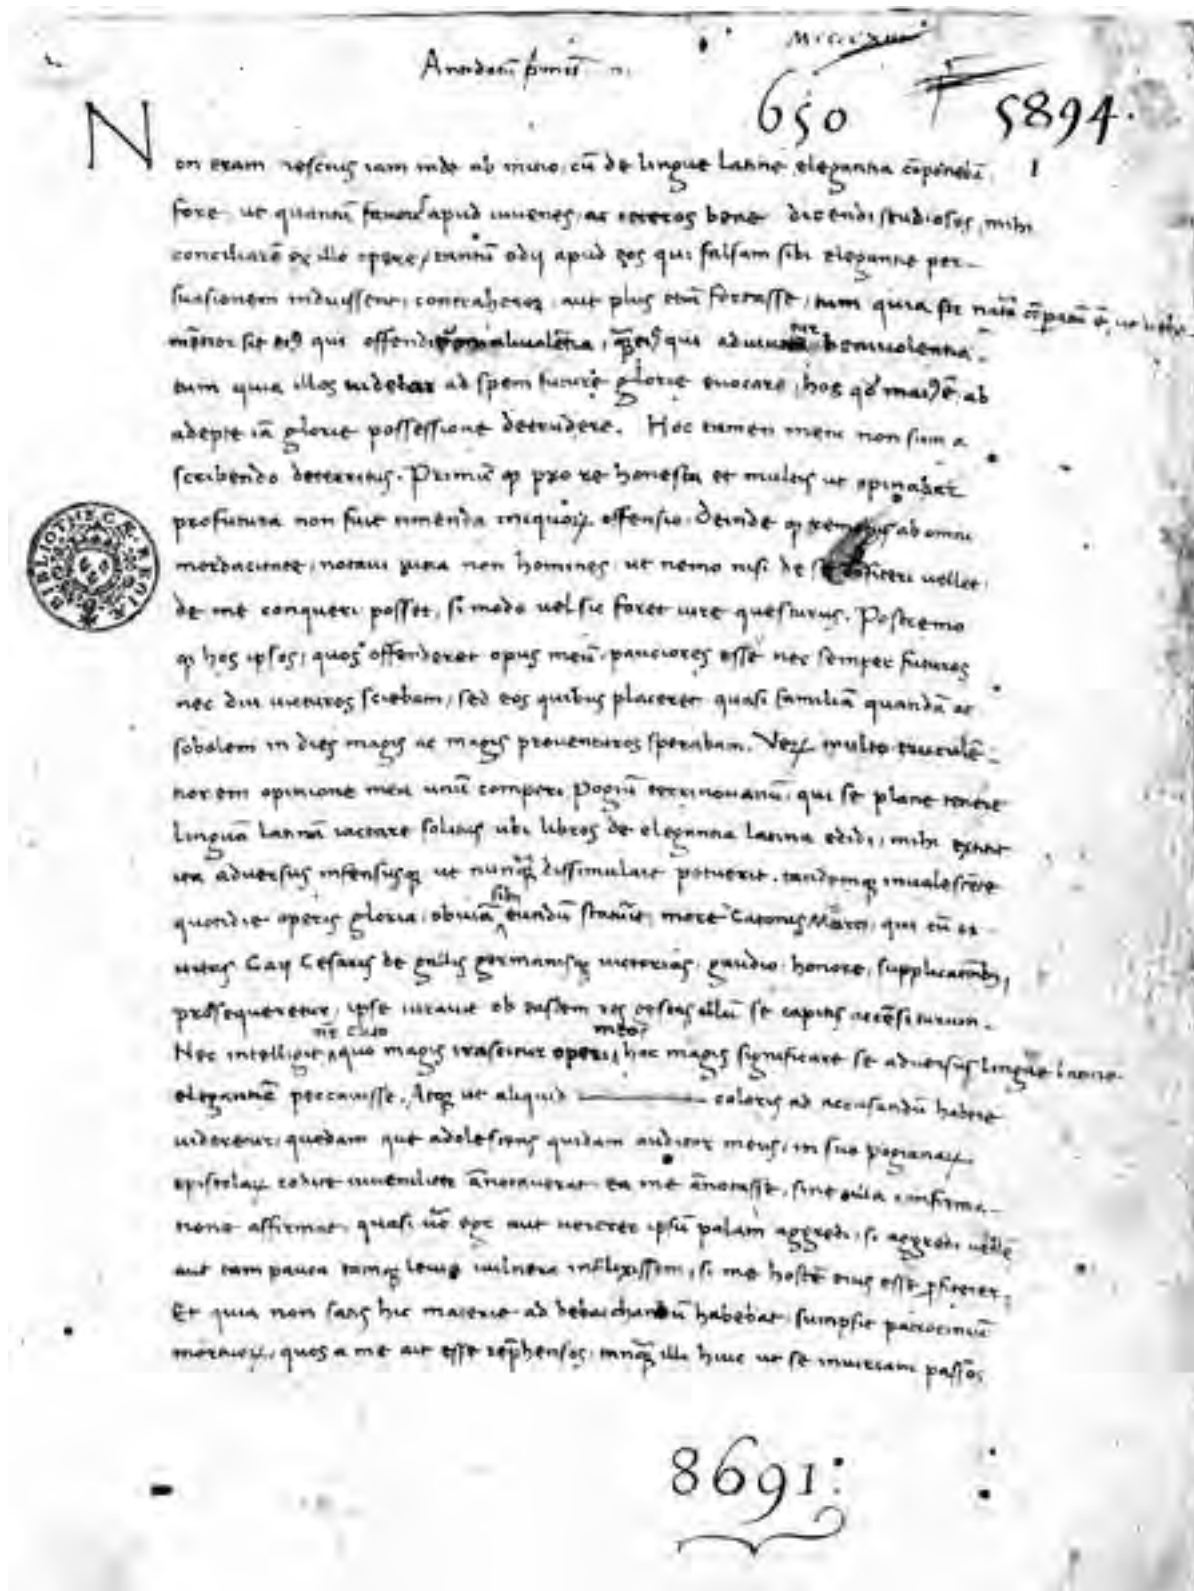 Antidotū primū
650
5894.
1
Non eram nescius iam inde ab initio, cū de lingue latine elegantia cōponebā,
fore, ut quantū favoris apud iuvenes, ac ceteros bene dicendi studiosos, mihi
conciliarē ex illo opere, tantū odii apud eos qui falsam sibi elegantie per-
suasionem induissent, contraherem, aut plus etiā fortasse, tum quia sic natura
sit eis qui qui benivolentia.
tum quia illos videbar ad spem future glorie evocare, hos ab
adepte iā glorie possessione detrudere. Hoc tamen metu non sum a
scribendo deterritus. Primū ꝙ pro re honesta et multis ut opinabar
profutura non fuit timenda iniquoꝝ offensio. Deinde ꝙ ab omni
mordacitate, notavi vitia non homines, ut nemo nisi de se vellet,
de me conqueri posset, si modo vel sic foret iure questurus. Postremo
ꝙ hos ipsos, quos offenderet opus meū, pauciores esse nec semper futuros
nec diu victuros sciebam, sed eos quibus placeret quasi familiā quandā ac
sobolem in dies magis ac magis proventuros sperabam. Veꝝ multo truculē-
tiorem opinione mea unū comperi Pogiū terrinovanū, qui se plane tenere
linguā latinā iactare solitus ubi libros de elegantia latina edidi, mihi extitit
ita adversus infensusqꝫ ut nunqꝫ dissimulare potuerit. tandemqꝫ invalescente
quotidie operis gloria, obviā sibi eundū statuit, more Catonis Marci, qui cū
Caii Cesaris de gallis germanisqꝫ victorias, gaudio, honore, supplicationibus,
prosequeretur, ipse iuravit ob easdem res gestas illū se capitis accēsiturum.
Nec intelligit, quo magis irascitur operi meo, hoc magis significare se adversus lingue latine
elegantiā peccavisse. Atqꝫ ut aliquid coloris ad accusandū habere
videretur, quedam que adolescens quidam auditor meus, in suo pogianaꝝ
epistolaꝝ codice iuveniliter ānotaverat, ea me ānotasse, sine ulla confirma-
tione affirmat, quasi vero ego aut vererer ipsū palam aggredi, si aggredi vellē
aut tam pauca tamqꝫ levia vulnera inflixissem, si me hostē eius esse ꝓfiterer.
Et quia non satis hic materie ad debachandū habebat, sumpsit patrociniū
mortuoꝝ, quos a me ait esse reprehensos, tanqꝫ illi huic ut se iniuriam passos
BIBLIOTHECÆ REGIÆ
8691: